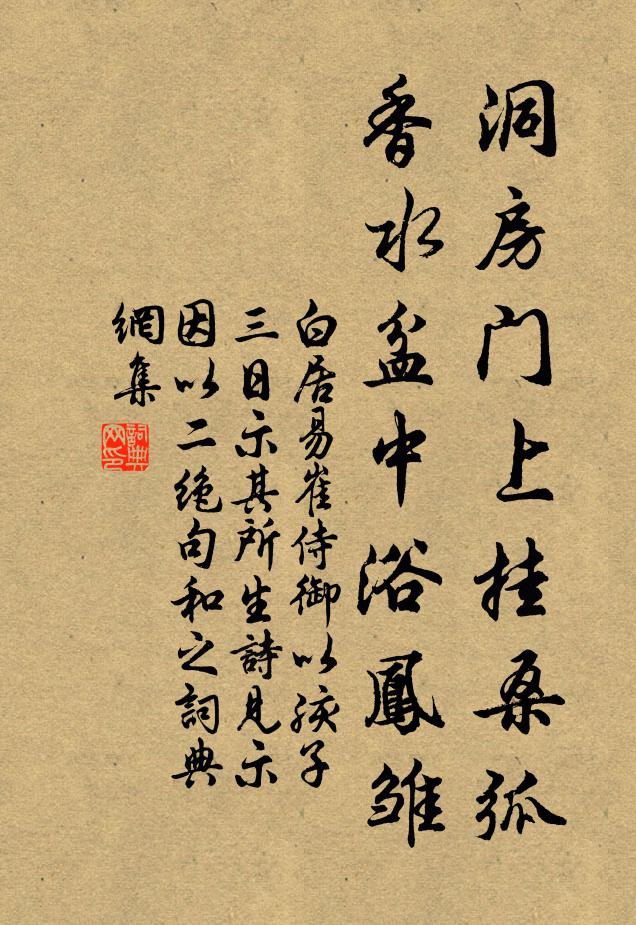 洞房门上挂桑弧
香水盆中浴鳳雛
白居易崔侍御以孩子
三日示其所生詩見示
因以二绝句和之詞典
網集
詞典网印